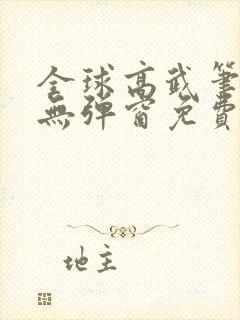 全球高武筆
無彈窗免費
地主